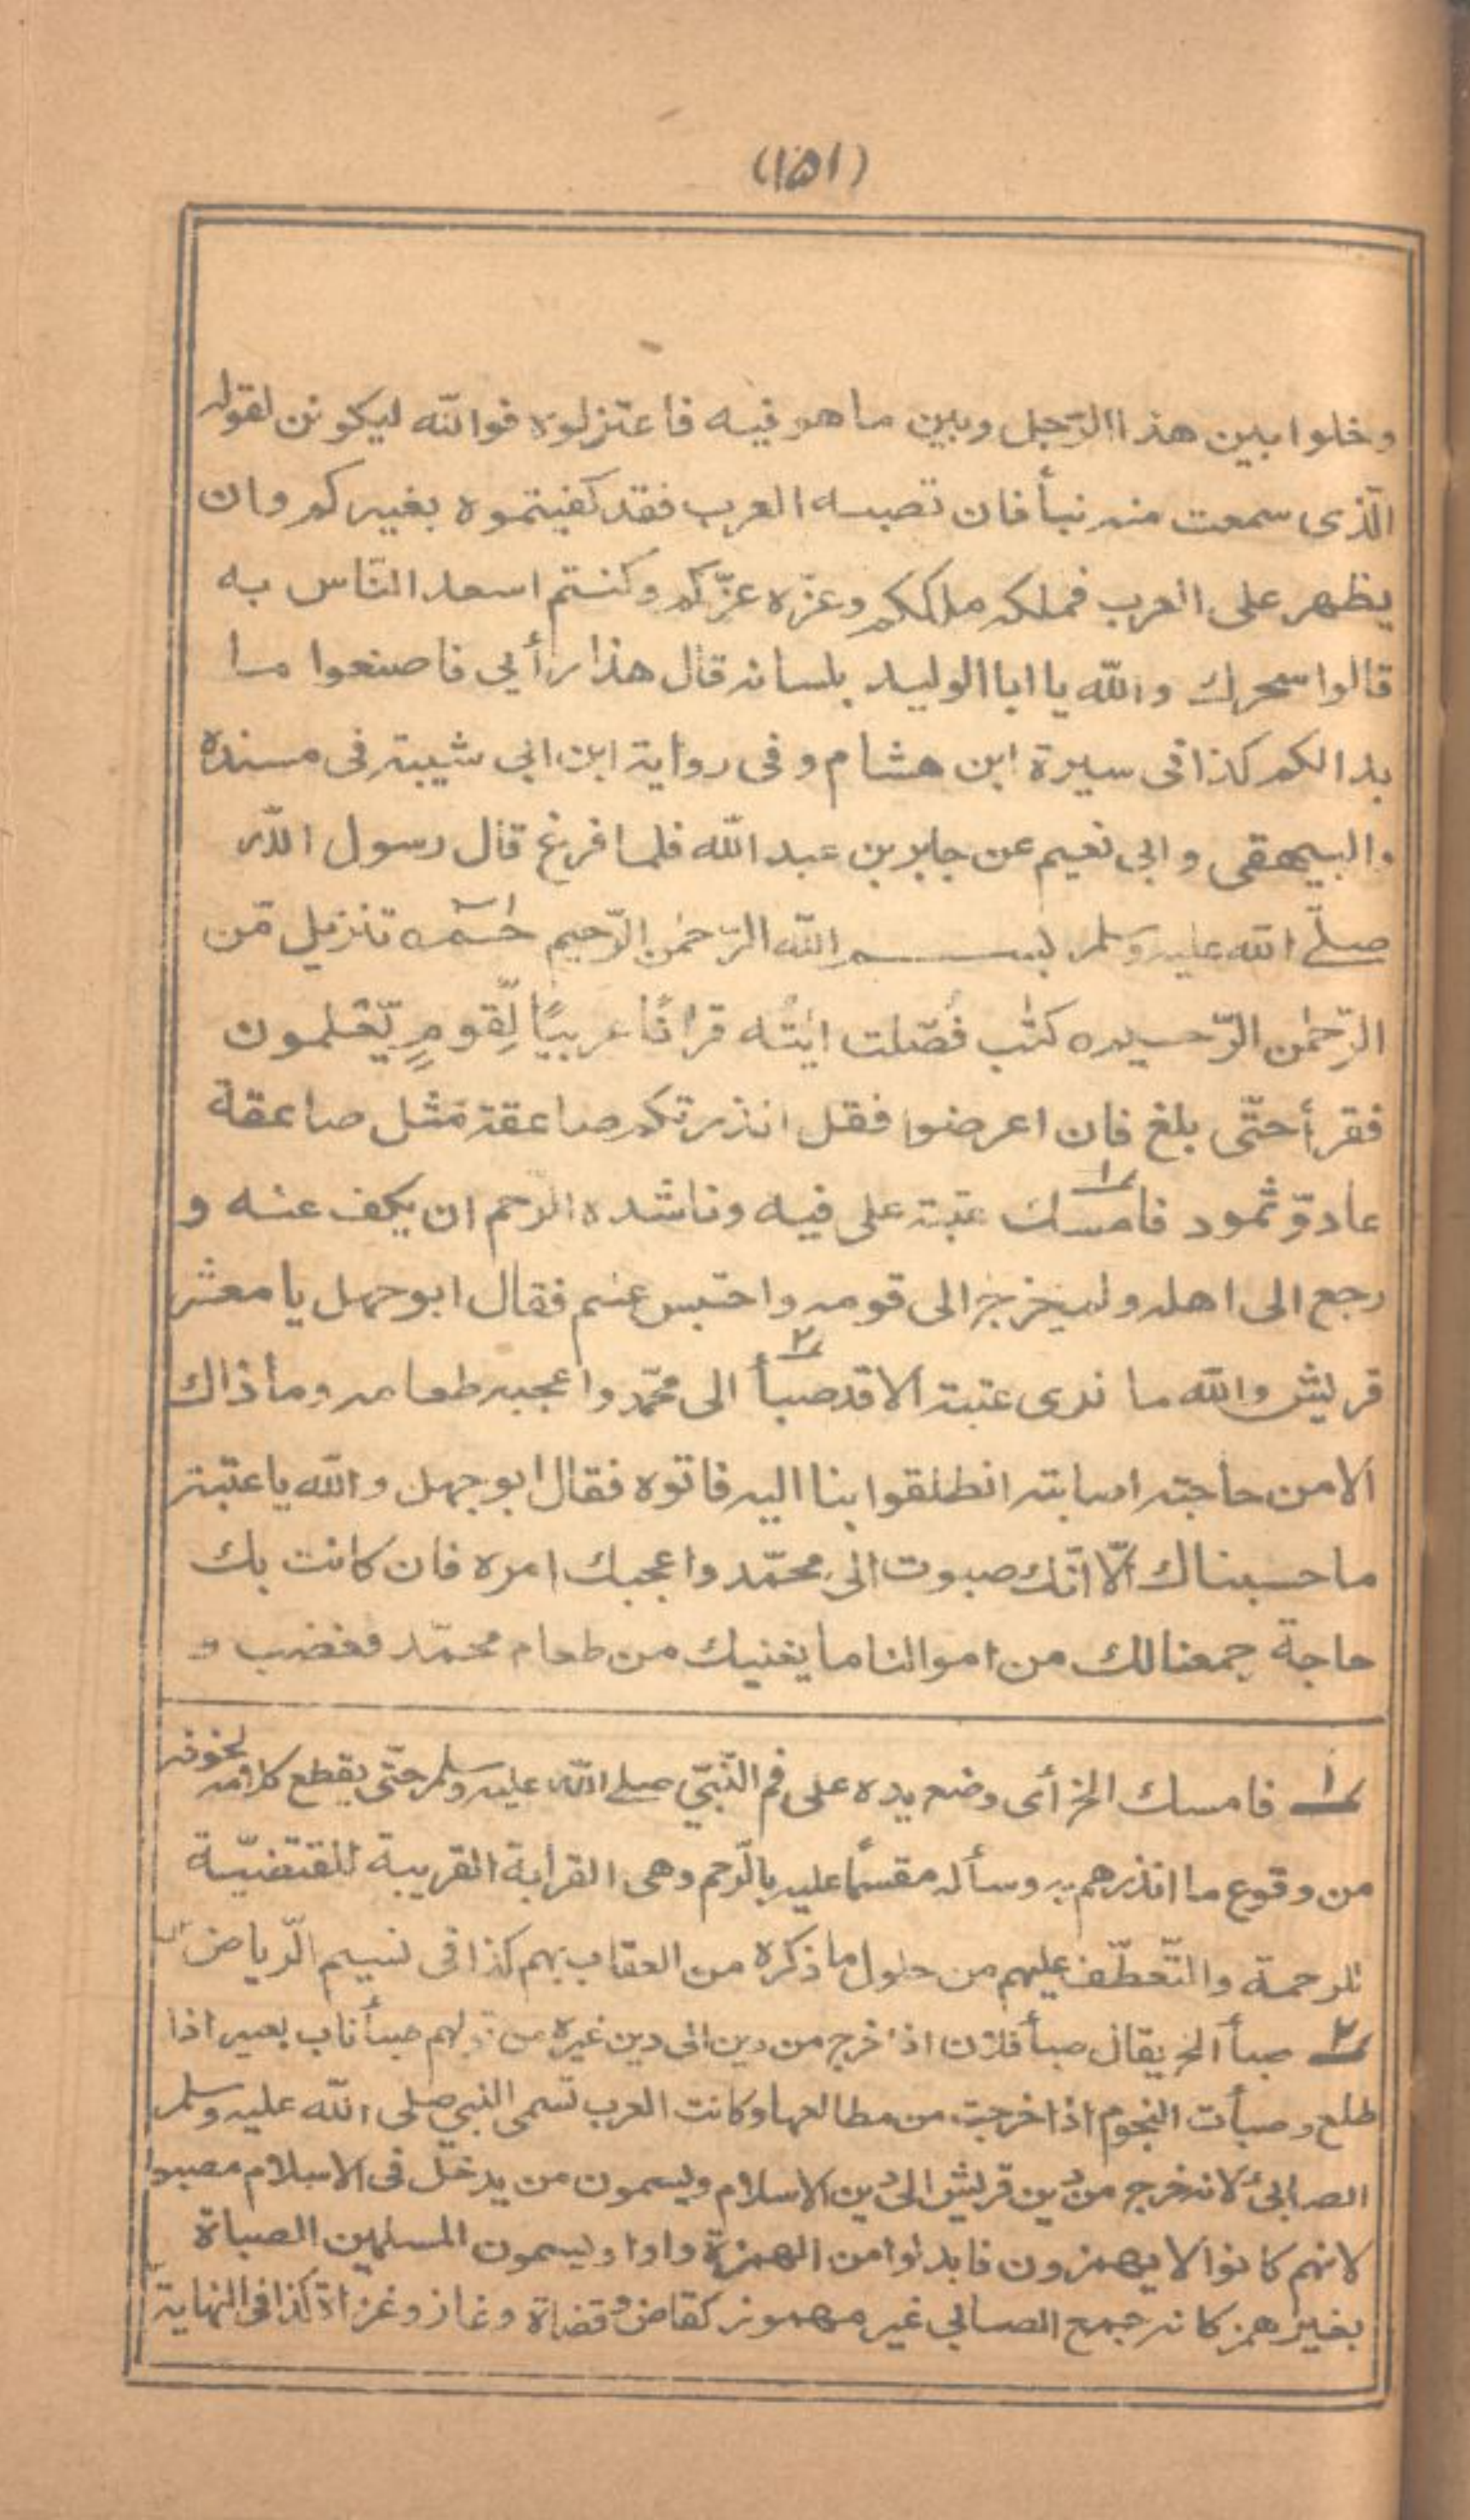 (۱۵۱)
وخلوا بين هذا الرّجل وبين ما هو فيه فاعتزلوه فوالله ليكونن لقوله
الّذى سمعت منه نبأ فان تصبه العرب فقد كفيتموه بغيركم وان
يظهر على العرب فملكه ملككم وعزّه عزّكم وكنتم اسعد النّاس به
قالوا سحرك والله يا ابا الوليد بلسانه قال هذا رأيي فاصنعوا ما
بدا لكم كذا فى سيرة ابن هشام وفى رواية ابن ابي شيبة فى مسنده
والبيهقى وابى نعيم عن جابر بن عبد الله فلما فرغ قال رسول الله
صلّے الله عليه وسلم بسم الله الرّحمٰن الرّحيم حٰمٓ ه تنزيل مّن
الرّحمٰن الرّحيم ه كتٰب فُصّلت اٰيٰتُه قراٰنًا عربيًا لِّقومٍ يّعلمون
فقرأ حتّى بلغ فان اعرضوا فقل انذرتكم صاعقة مّثل صاعقة
عاد وّثمود فامسك ۱ عتبة على فيه وناشده الرّحم ان يكف عنه و
رجع الى اهله ولم يخرج الى قومه واحتبس عنهم فقال ابوجهل يا معشر
قريش والله ما نرى عتبة الا قد صبأ ۲ الى محمّد واعجبه طعامه وما ذاك
الا من حاجة اصابته انطلقوا بنا اليه فاتوه فقال ابوجهل والله يا عتبة
ما حسبناك الّا انّك صبوت الى محمّد واعجبك امره فان كانت بك
حاجة جمعنا لك من اموالنا ما يغنيك من طعام محمّد فغضب و
۱ فامسك الخ أى وضع يده على فم النّبيّ صلے الله عليه وسلم حتّى يقطع كلامه لخوفه
من وقوع ما انذرهم به وسأله مقسمًا عليه بالرّحم وهى القرابة القريبة المقتضيّة
للرحمة والتّعطّف عليهم من حلول ما ذكره من العقاب بهم كذا فى نسيم الرّياض
۲ صبأ الخ يقال صبأ فلان اذا خرج من دين الى دين غيره من قولهم صبأ ناب بعير اذا
طلع وصبأت النجوم اذا خرجت من مطالعها وكانت العرب تسمى النبي صلى الله عليه وسلم
الصابئ لانه خرج من دين قريش الى دين الاسلام ويسمون من يدخل فى الاسلام مصبوا
لانهم كانوا لا يهمزون فابدلوا من الهمزة واوا ويسمون المسلمين الصباة
بغير همز كانه جمع الصابي غير مهموز كقاض وقضاة وغاز وغزاة كذا فى النهاية